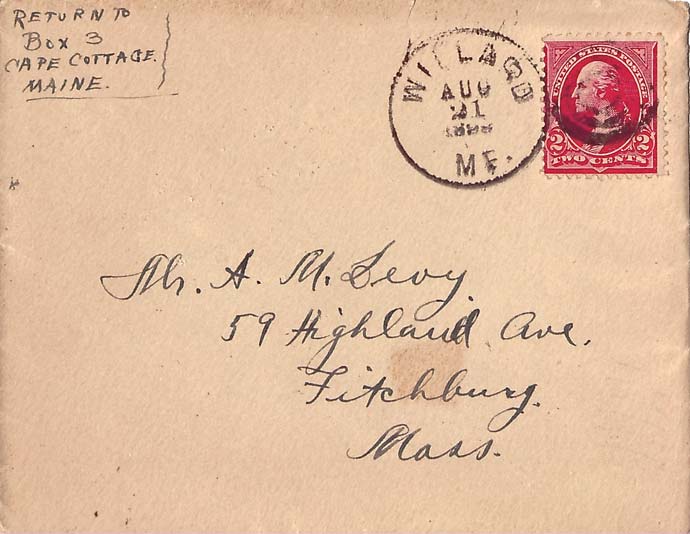 RETURN TO
BOX 3
CAPE COTTAGE.
MAINE.
WILLARD
AUG
21
ME.
UNITED STATES POSTAGE
2 2
TWO CENTS
Mr. A. M. Levy.
59 Highland Ave.
Fitchburg.
Mass.